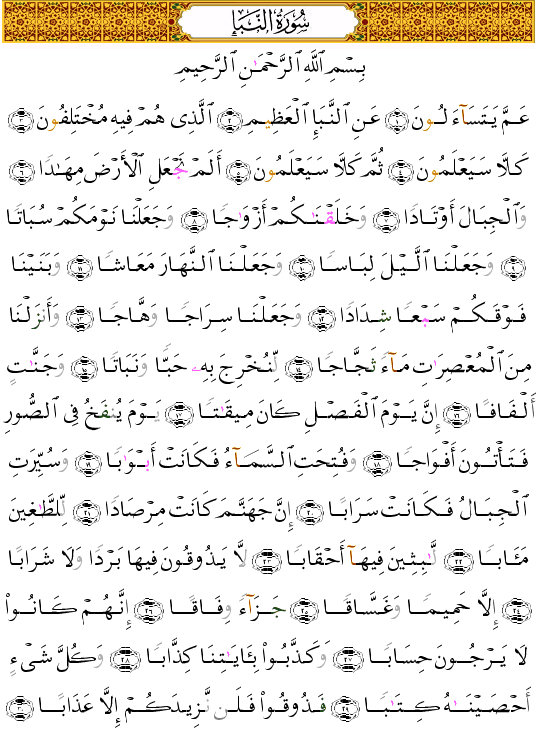 سُورَةُ النَّبَإِ
بِسْمِ ٱللَّهِ ٱلرَّحْمَـٰنِ ٱلرَّحِيمِ
عَمَّ يَتَسَآءَلُونَ ١ عَنِ ٱلنَّبَإِ ٱلْعَظِيمِ ٢ ٱلَّذِى هُمْ فِيهِ مُخْتَلِفُونَ ٣
كَلَّا سَيَعْلَمُونَ ٤ ثُمَّ كَلَّا سَيَعْلَمُونَ ٥ أَلَمْ نَجْعَلِ ٱلْأَرْضَ مِهَـٰدًا ٦
وَٱلْجِبَالَ أَوْتَادًا ٧ وَخَلَقْنَـٰكُمْ أَزْوَٰجًا ٨ وَجَعَلْنَا نَوْمَكُمْ سُبَاتًا
٩ وَجَعَلْنَا ٱلَّيْلَ لِبَاسًا ١٠ وَجَعَلْنَا ٱلنَّهَارَ مَعَاشًا ١١ وَبَنَيْنَا
فَوْقَكُمْ سَبْعًا شِدَادًا ١٢ وَجَعَلْنَا سِرَاجًا وَهَّاجًا ١٣ وَأَنزَلْنَا
مِنَ ٱلْمُعْصِرَٰتِ مَآءً ثَجَّاجًا ١٤ لِّنُخْرِجَ بِهِۦ حَبًّا وَنَبَاتًا ١٥ وَجَنَّـٰتٍ
أَلْفَافًا ١٦ إِنَّ يَوْمَ ٱلْفَصْلِ كَانَ مِيقَـٰتًا ١٧ يَوْمَ يُنفَخُ فِى ٱلصُّورِ
فَتَأْتُونَ أَفْوَاجًا ١٨ وَفُتِحَتِ ٱلسَّمَآءُ فَكَانَتْ أَبْوَٰبًا ١٩ وَسُيِّرَتِ
ٱلْجِبَالُ فَكَانَتْ سَرَابًا ٢٠ إِنَّ جَهَنَّمَ كَانَتْ مِرْصَادًا ٢١ لِّلطَّـٰغِينَ
مَـَٔابًا ٢٢ لَّـٰبِثِينَ فِيهَآ أَحْقَابًا ٢٣ لَّا يَذُوقُونَ فِيهَا بَرْدًا وَلَا شَرَابًا
٢٤ إِلَّا حَمِيمًا وَغَسَّاقًا ٢٥ جَزَآءً وِفَاقًا ٢٦ إِنَّهُمْ كَانُوا۟
لَا يَرْجُونَ حِسَابًا ٢٧ وَكَذَّبُوا۟ بِـَٔايَـٰتِنَا كِذَّابًا ٢٨ وَكُلَّ شَىْءٍ
أَحْصَيْنَـٰهُ كِتَـٰبًا ٢٩ فَذُوقُوا۟ فَلَن نَّزِيدَكُمْ إِلَّا عَذَابًا ٣٠